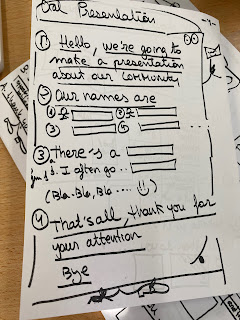 Oral Presentation
① Hello, we're going to
make a presentation
about our community
② Our names are
① ②
③ ④
③ There's a
I often go ..
(Bla-Bla, Bla .... !!)
④ That's all, thank you for
your attention
Bye